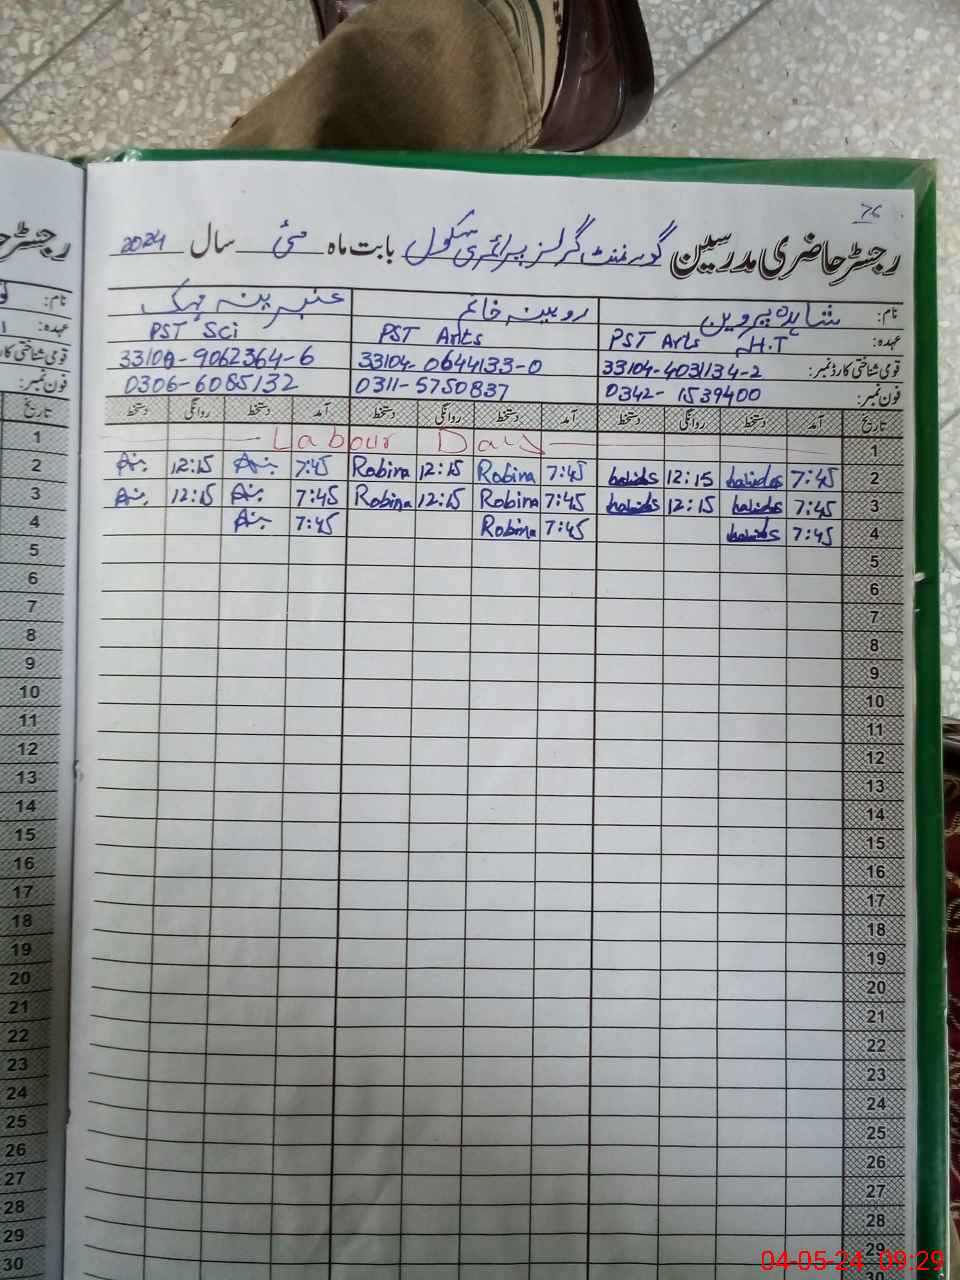 76
رجسٹر حاضری مدرسین گورنمنٹ گرلز پرائمری سکول بابت ماہ مئی سال 2024
نام: شاہدہ پروین روبینہ خانم عنبرینہ مہک
عہدہ: PST Arts H.T PST Arts PST Sci
قومی شناختی کارڈ نمبر: 33104-4031134-2 33104-0644133-0 33100-9062364-6
فون نمبر: 0342-1539400 0311-5750837 0306-6085132
تاریخ آمد دستخط روانگی دستخط آمد دستخط روانگی دستخط آمد دستخط روانگی دستخط
1 Labour Day
2 7:45 12:15 7:45 Robina 12:15 Robina 7:45 12:15
3 7:45 12:15 7:45 Robina 12:15 Robina 7:45 12:15
4 7:45 7:45 Robina 7:45
5
6
7
8
9
10
11
12
13
14
15
16
17
18
19
20
21
22
23
24
25
26
27
28
29
30
رجسٹر
نام:
عہدہ:
قومی شناختی کارڈ
فون نمبر:
تاریخ
1
2
3
4
5
6
7
8
9
10
11
12
13
14
15
16
17
18
19
20
21
22
23
24
25
26
27
28
29
30
04-05-24 09:29